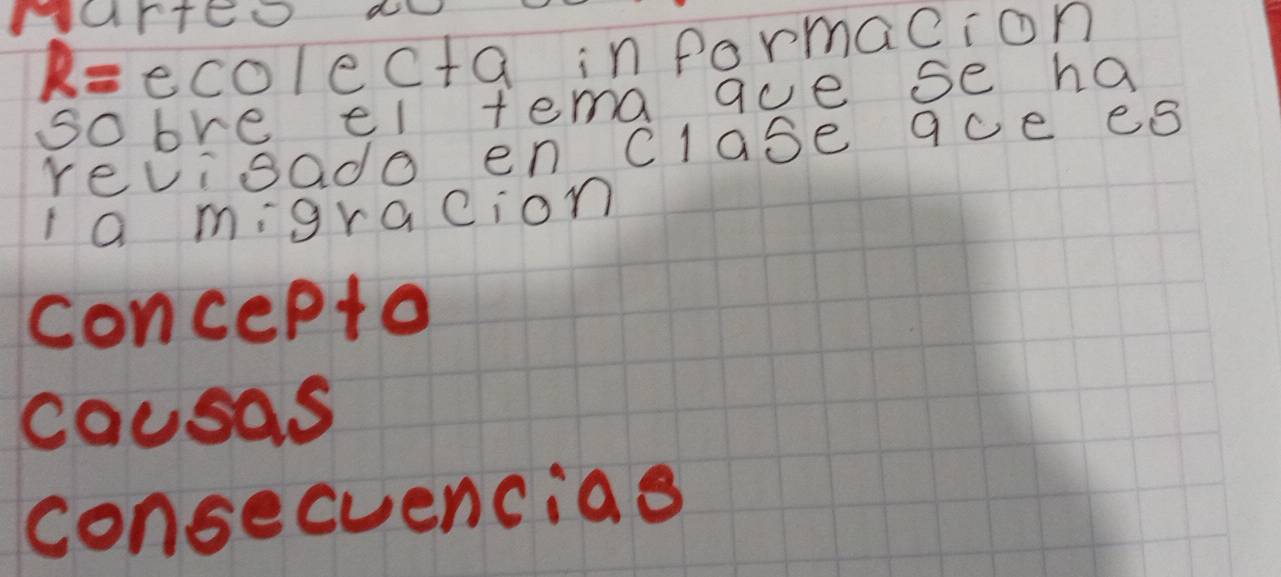 Martes
R=ecolecta informacion
sobre el tema que se ha
revisado en clase que es
la migracion
concepto
causas
consecuencias